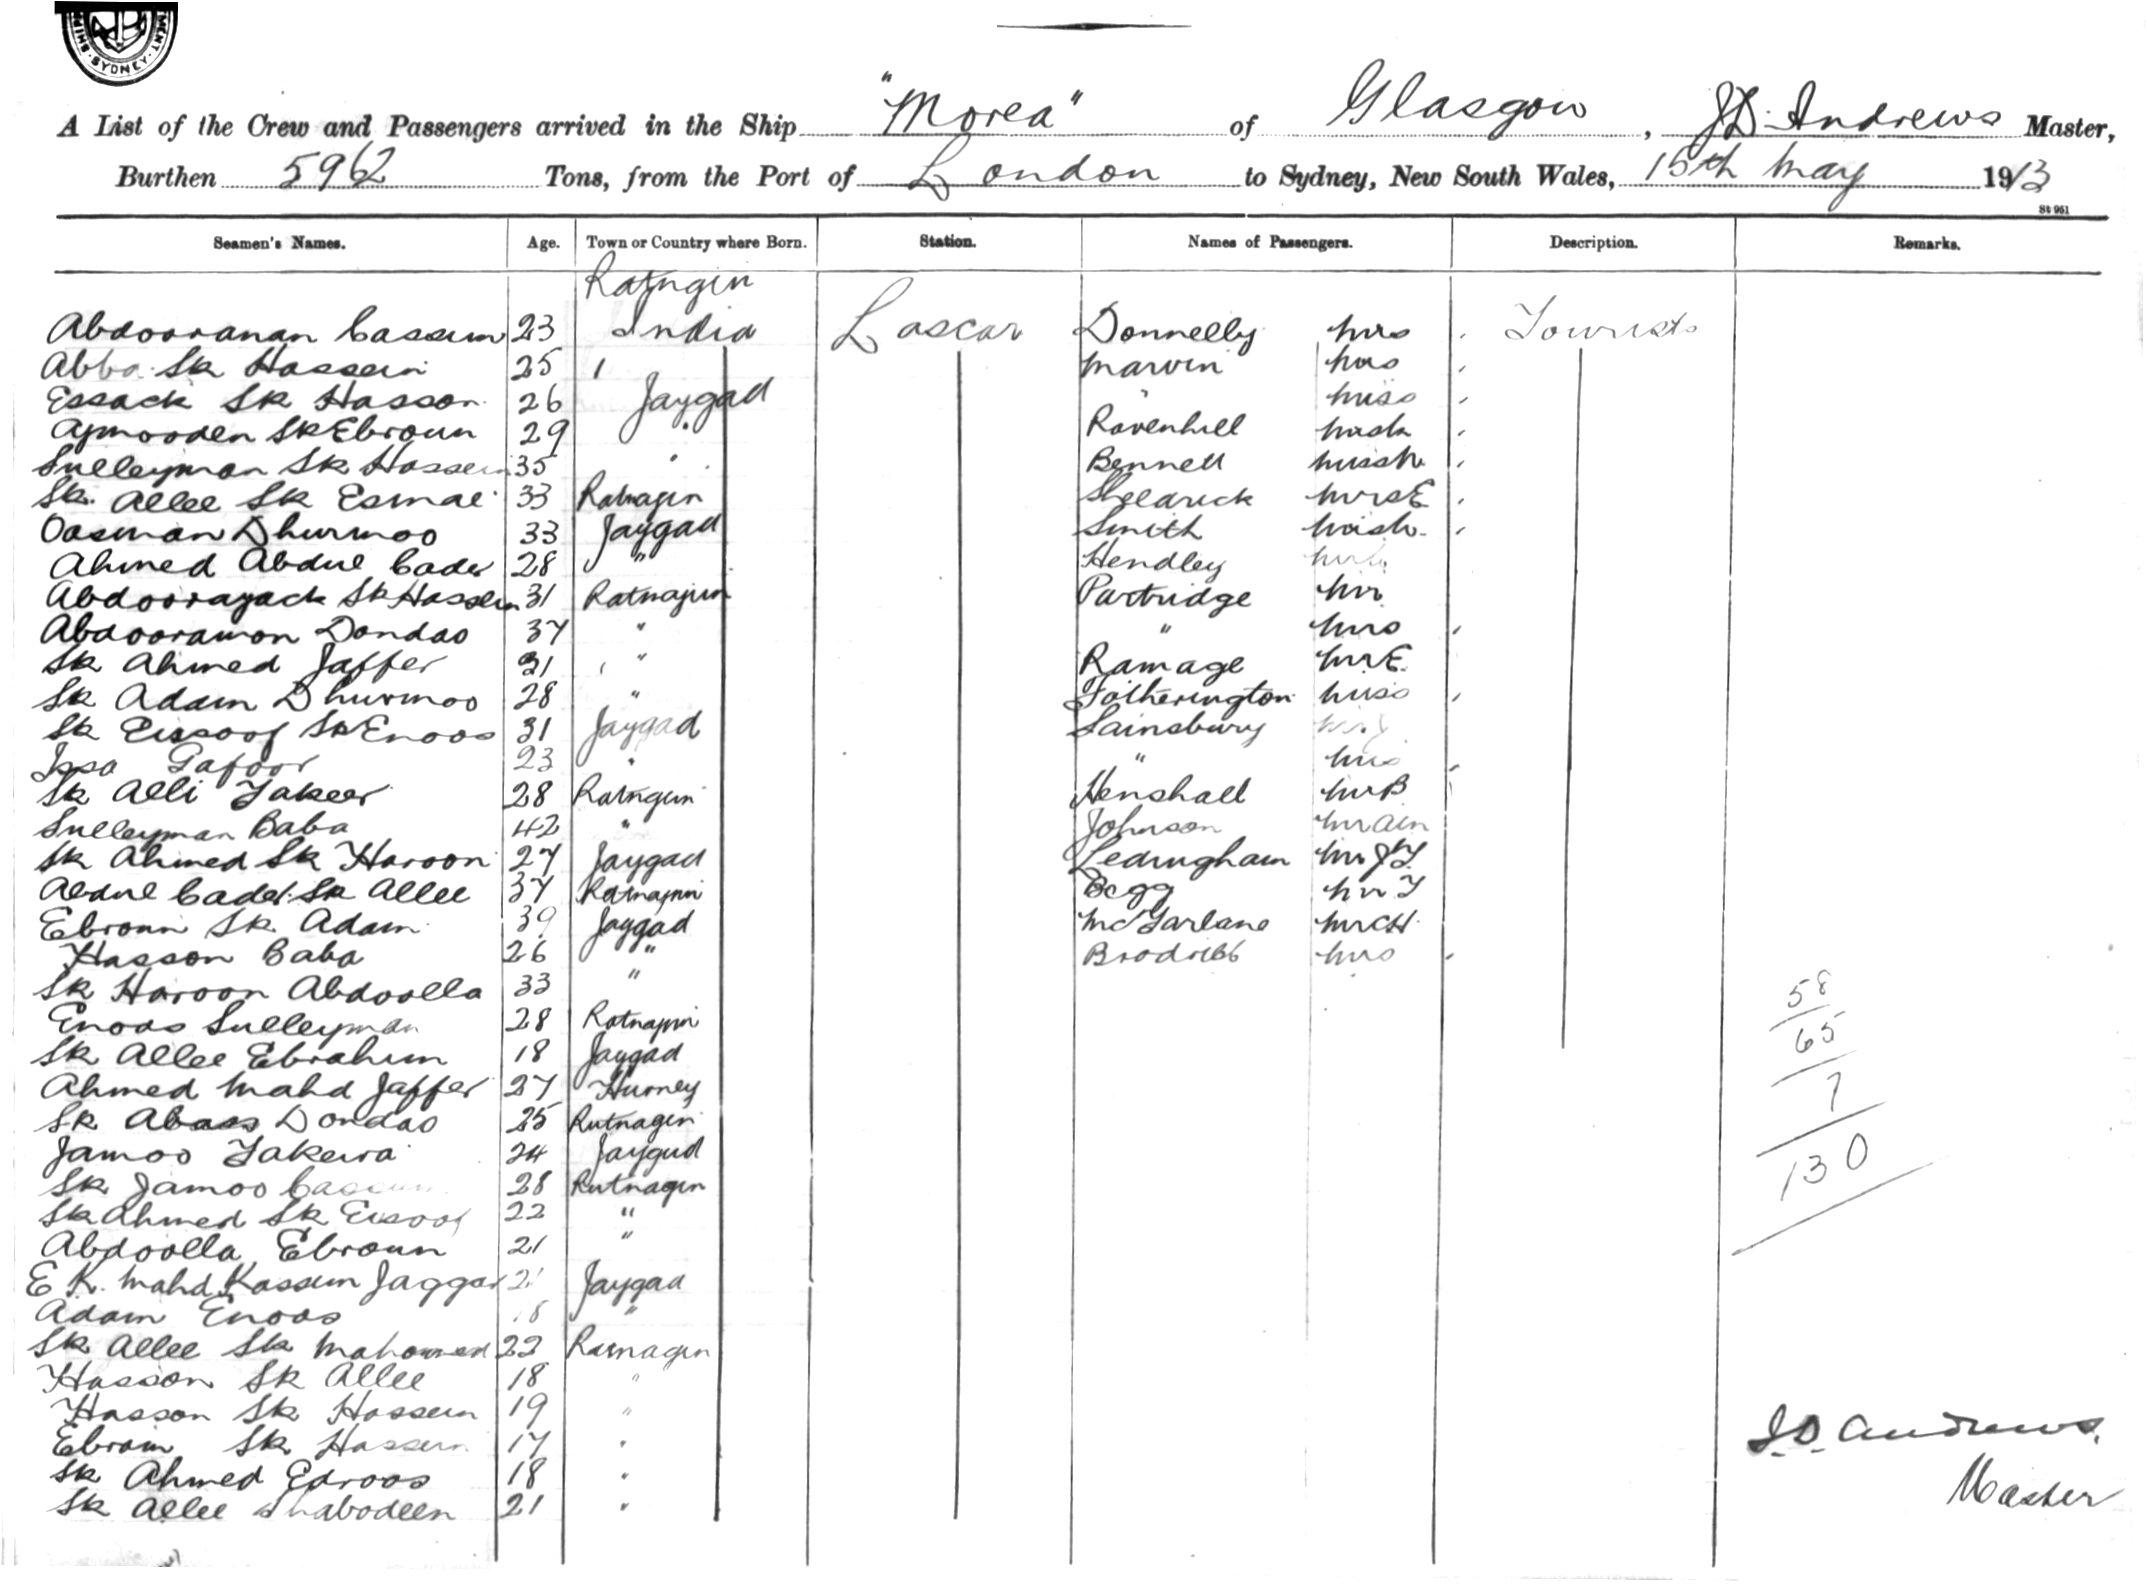 SHIP MENT · SYDNEY ·
A List of the Crew and Passengers arrived in the Ship "Morea" of Glasgow, JD. Andrews Master,
Burthen 5962 Tons, from the Port of London to Sydney, New South Wales, 15th May 1913
St 951
Seamen's Names. Age. Town or Country where Born. Station. Names of Passengers. Description. Remarks.
Ratngin
Abdooranan Cassum 23 India Lascar Donnelly Mrs Tourists
Abba Sk Hassein 25 Marvin Mrs
Essack Sk Hasson 26 Jaygad " Miss
Ajmooden Sk Ebroun 29 " Ravenhill
Sulleyman Sk Hassein 35 " Bennett
Sk. Allee Sk Esmal 33 Ratnagin Shedrick Mrs E
Oasman Dhurmoo 33 Jaygad Smith
Ahmed Abdul Cader 28 " Hendley
Abdoorayack Sk Hassein 31 Ratnagin Partridge Mr
Abdooramon Dondao 37 " " Mrs
Sk Ahmed Jaffer 31 " Ramage Mr E.
Sk Adam Dhurmoo 28 " Fotherington Miss
Sk Eusoof Sk Enoos 31 Jaygad Sainsbury
Issa Gafoor 23 " "
Sk Alli Fakeer 28 Ratngin Henshall Mr B
Sulleyman Baba 42 " Johnson
Sk Ahmed Sk Haroon 27 Jaygad Ledingham Mr J F
Abdul Cader Sk Allee 37 Ratnagin Begg Mr F
Ebroun Sk. Adam 39 Jaygad McFarlane Mr CH
Hasson Baba 26 " Brodribb Mrs
Sk Haroon Abdoolla 33 "
Enoos Sulleyman 28 Ratnagin
Sk Allee Ebrahim 18 Jaygad
Ahmed Mahd Jaffer 27 Hurney
Sk Abaas Dondao 25 Rutnagin
Jamoo Fakeera 24 Jaygud
Sk Jamoo Cassum 28 Rutnagin
Sk Ahmed Sk Eusoof 22 "
Abdoolla Ebroun 21 "
E K. Mahd Kassum Jaggar 21 Jaygad
Adam Enoos 18 "
Sk Allee Sk Mahomed 22 Ratnagin
Hasson Sk Allee 18 "
Hasson Sk Hassein 19 "
Ebroun Sk Hassein 17 "
Sk Ahmed Edroos 18 "
Sk Allee Shabodeen 21 "
58
65
7
130
J.D. Andrews.
Master